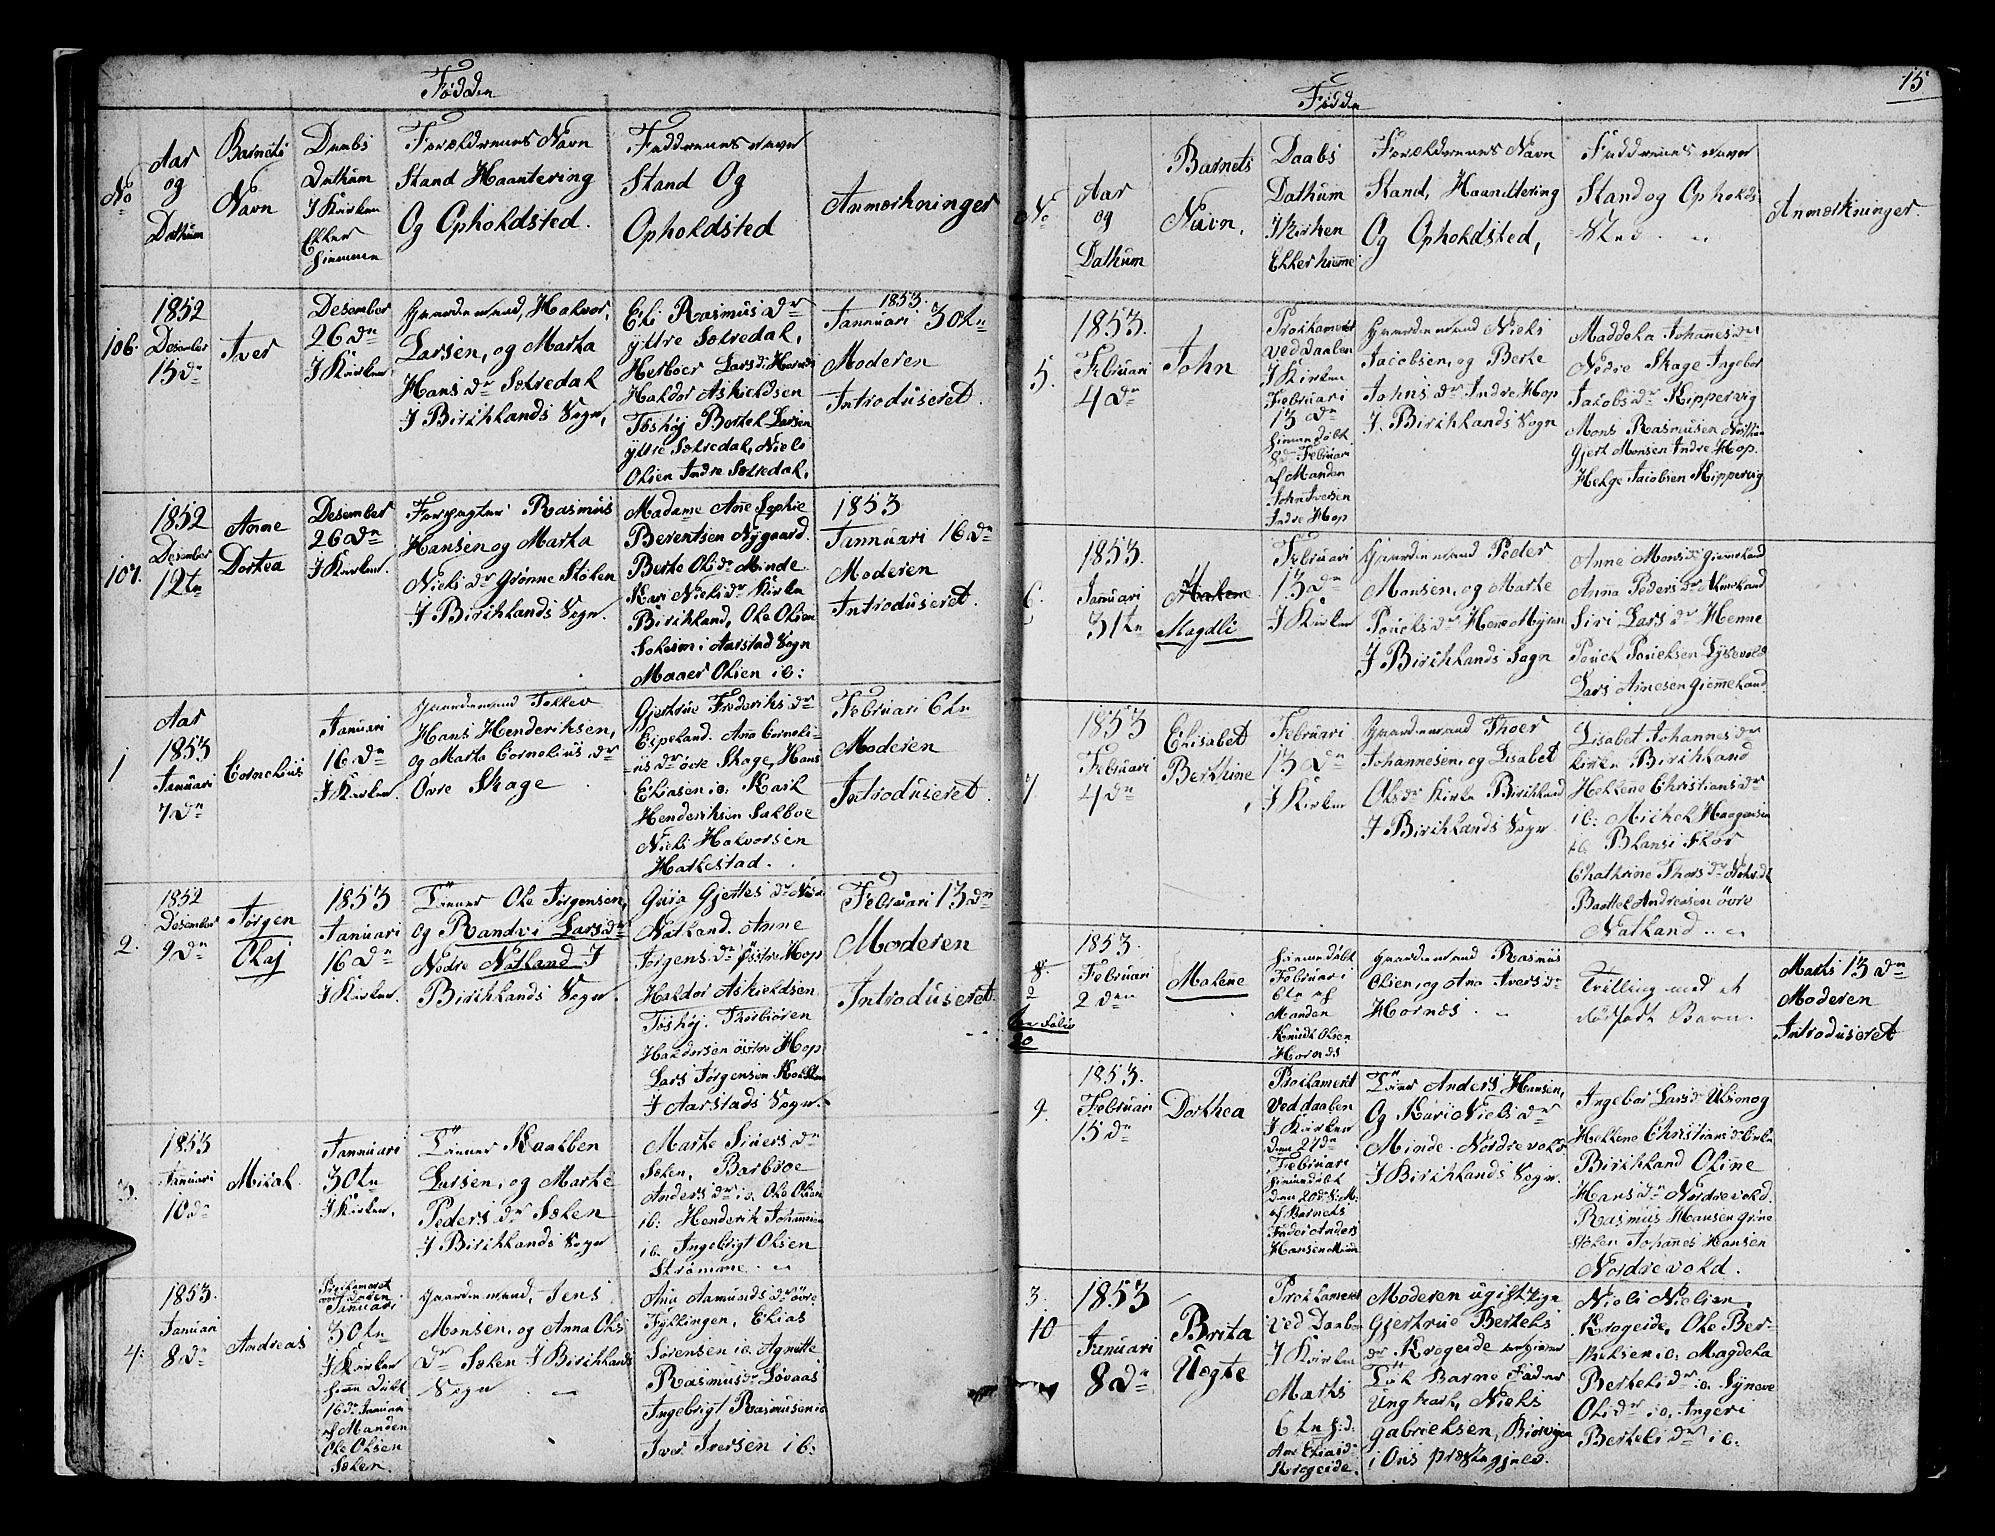 Fødden
No
Aar
og
Dathum
Barnets
Navn
Daabs
Dathum
I Kirken
Eller
Hiemmen
Forældrenes Navn
Stand Haantering
Og Opholdsted.
Faddrenes Navn
Stand Og
Opholdsted
Anmærkninger
106.
1852
Desember
15 dn
Iver
Desember
26 dn
I Kirken
Gaardemand, Halvor,
Larsen, og Marta
Hans dr Sælredal
I Birchlands Sogn,
Eli Rasmus dr
yttre Sælredal,
Herboer Lars d: Hornds
Haldor Askieldsen
Toshøj Bertel Larsen
yttre Sælredal, Niels
Olsen Indre Sælredal,
1853.
Jannuari 30te
Moderen
Introduseret.
107.
1852
Desember
12te
Anne
Dortea
Desember
26 dn
I Kirken
Forpagter Rasmus
Hansen og Marta
Niels dr Grønne Stølen
I Birchlands Sogn.
Madame Ane Sophie
Berentsen Nygaard.
Berte Ols dr Minde
Kari Niels dr Kirke
Birchland, Ole Olsen
Solheim i Aarstad Sogn
Maaer Olsen ib:
1853
Jannuari 16 dn
Moderen
Introduseret.
1
Aar
1853
Januari
7 dn
Cornelius
Januari
16 dn
I Kirken
Gaardemand
Hans Henderiksen,
og Marta Cornelius dr
Øvre Skage
Gjertrue Frederiks dr
Espeland. Ana Corneli-
us dr øvre Skage, Hans
Eliasen ib. Karl
Henderiksen Salboe
Niels Halvorsen
Hatlestad.
Februari 6te
Moderen
Introduseret.
2.
1852
Desember
9 dn
Jørgen
Olaj
1853
Januari
16 dn
I Kirken.
Tienner Ole Jørgensen,
og Randvi Lars dr
Nedre Natland I
Birchlands Sogn.
Guia Gjertes dr Nedre
Natland. Anne
Jørgens dr Østre Hop
Haldor Askieldsen
Toshøj. Thorbiøren
Haldorsen østre Hop
Lars Jørgensen
I Aarstads Sogn.
Februari 13 dn
Moderen
Introduseret.
3.
1853
Januari
10 dn
Mikal
Jannuari
30te
I Kirken.
Tienner Kaalben
Larsen, og Marte
Peders dr Sælen
I Birchlands Sogn
Marte Siuers dr
Sælen, Barbroe
Anders dr ib. Ole Olsen
ib: Henderik Johannesen
ib. Ingebrigt Olsen
Strømme.
4.
1853.
Januari
8 dn
Andreas
Proklameret
ved daaben
Januari
30te
I Kirken
Hiem døbt
16 dn Januari
af Manden
Ole Olsen
Sælen.
Gaardemand, Jens
Monsen, og Anna Ols
dr Sælen I Birchlands
Sogn
Ana Aamunds dr øvre
Fyllingen, Elias
Sørensen ib. Agnette
Rasmus dr Løvaas
Ingebrigt Rasmusen ib
Iver Iversen ib:
15
Fødde
No
Aar
og
Dathum
Barnets
Navn,
Daabs
Dathum
I Kirken
Eller hiemme
Forældrenes Navn
Stand, Haandtering
Og Opholdsted,
Faddrenes Navn
Stand og Opholds.
Sted
Anmærkninger.
5.
1853.
Februari
4 dn
John
Proklameret
Ved daaben
I Kirken
Februari
13 dn
Hiemmdøbt
8de Februari
af Manden
John Ivesen
Indre Hop
Gaardemand Niels
Jacobsen, og Berte
Johns dr Indre Hop
I. Birchlands Sogn
Maddela Johanes dr
Nedre Skage Ingebor
Jacobs dr Kippervig
Mons Rasmusen
Gjert Monsen Indre Hop.
Helge Jacobsen Kippervig
6.
1853.
Januari
31te
Malene
Magdli
Februari
13 dn
I Kirken
Gaardemand Peder
Monsen, og Marte
Pouels dr Henne Myren
I Birchlands Sogn
Anne Mons dr Giemeland
Anna Peders dr
Siri Lars dr Henne
Pouel Pouelsen
Lars Arnesen Giemeland
7
1853
Februari
4 dn
Elisabet
Berthine
Februari
13 dn
I Kirken
Gaardemand Thoer
Johannesen, og Lisabet
Ols dr Kirke Birchland
I Birchlands Sogn.
Lisabet Johannes dr
Kirke Birchland
Hellene Christians dr
ib: Michel Haagensen
ib.
Chathrine Thors dr
Baltel Andreasen øvre
Natland..
8.
1853.
Februari
2 den
Malene
Hiemmdøbt
Februari
6te af
Manden
Knudt Olsen
Hornds
Gaardemand Rasmus
Olsen, og Ana Ivers dr
Hornæs.
Tvilling med et
dødfødt Barn.
Marts 13 dn
Moderen
Introduseret
9.
1853.
Februari
15 dn
Dorthea
Proklameret
Ved daaben
I Kirken
den 27 dn
Februari
Hiemmdøbt
den 20 d. s: M:
af Barnets
Fader Anders
Hansen Minde
Tiener Anders Hansen,
Og Kari Niels dr
Minde. Nordrevold
I Birchlands Sogn.
Ingebor Lars dr
Hellene Christians dr Kirke
Birchland Oline
Hans dr Nordrevold.
Rasmus Hansen Grøne
Stølen Johannes Hansen
Nordrevold.
3.
10
1853
Januari
8 dn
Brita
Uogte
Proklameret
Ved Daabn
I Kirken
Marts
6te h:d:
Ane Elias d:
Krogeide.
Moderen ugift Pige
Gjertrue Bertels
dr Krogeide
Til Barne Fader
Ungkarl, Niels
Gabrielsen,
i Ous præstegjeld.
Niels Nielsen
Krogeide, Ole Ber-
thelsen ib: Magdela
Bertels dr ib. Synneve
Ols dr ib, Ingeri
Bertels dr ib.